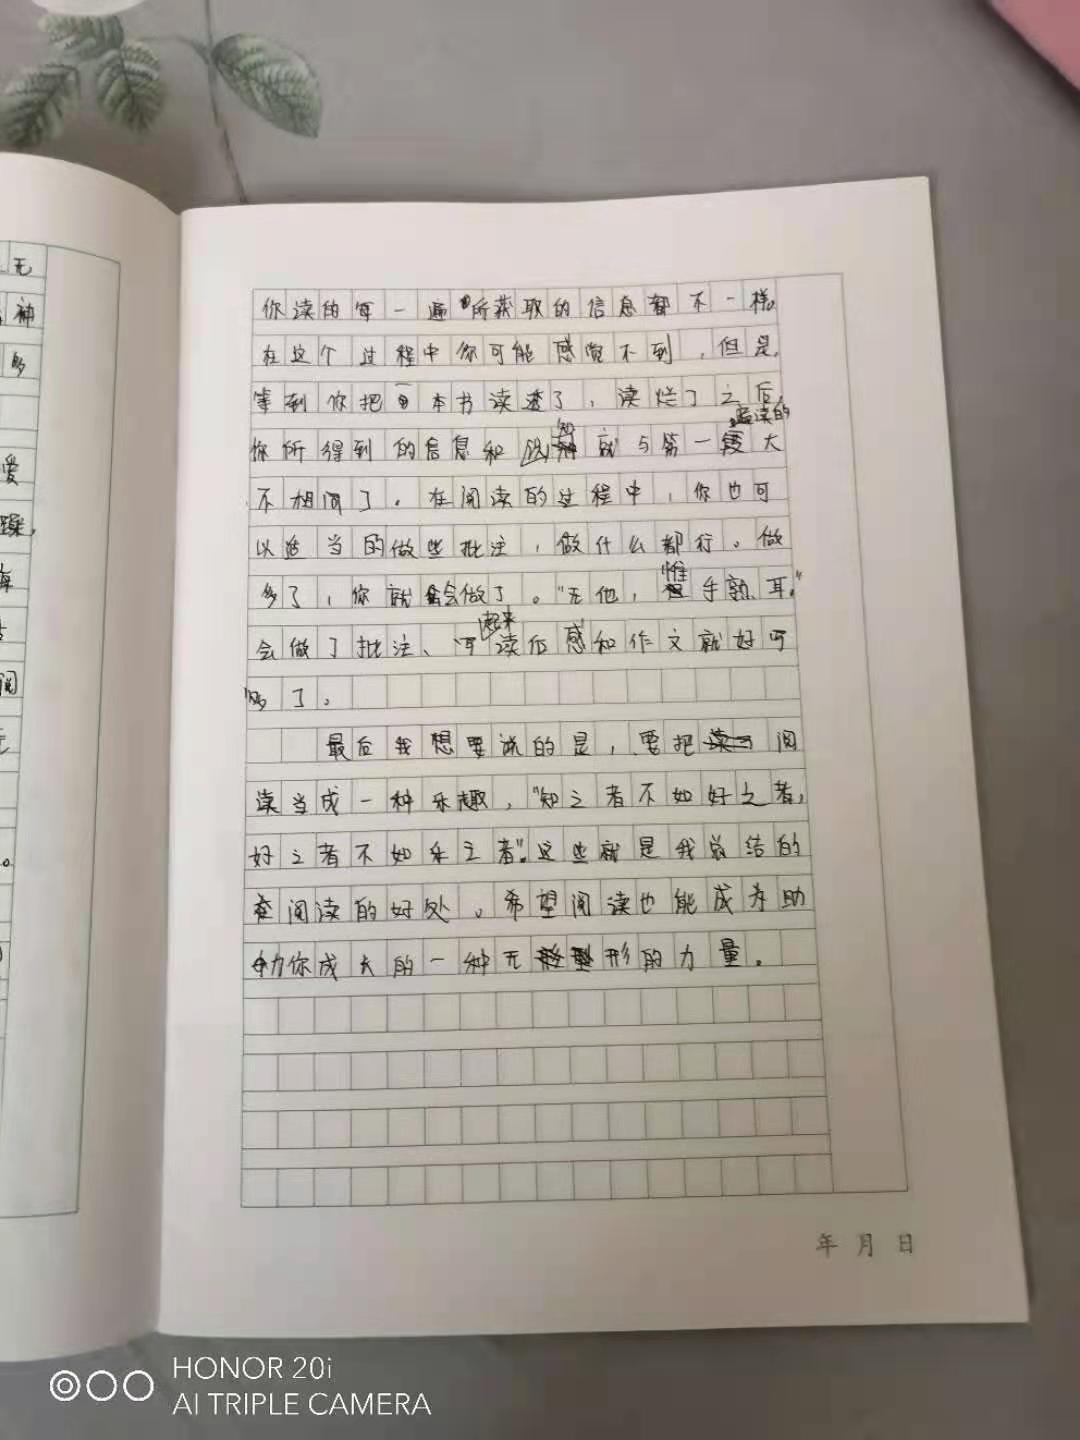 无
神
多
爱
躁,
海
阅
你读的每一遍所获取的信息都不一样。
在这个过程中你可能感觉不到,但是,
等到你把一本书读透了,读烂了之后,
你所得到的信息和认知就与第一遍读的大
不相同了。在阅读的过程中,你也可
以适当的做些批注,做什么都行。做
多了,你就会做了。“无他,惟手熟耳。”
会做了批注、写起来读后感和作文就好写
多了。
最后我想要说的是,要把阅
读当成一种乐趣,“知之者不如好之者,
好之者不如乐之者”。这些就是我总结的
阅读的好处。希望阅读也能成为助
力你成长的一种无形的力量。
年 月 日
HONOR 20i
AI TRIPLE CAMERA